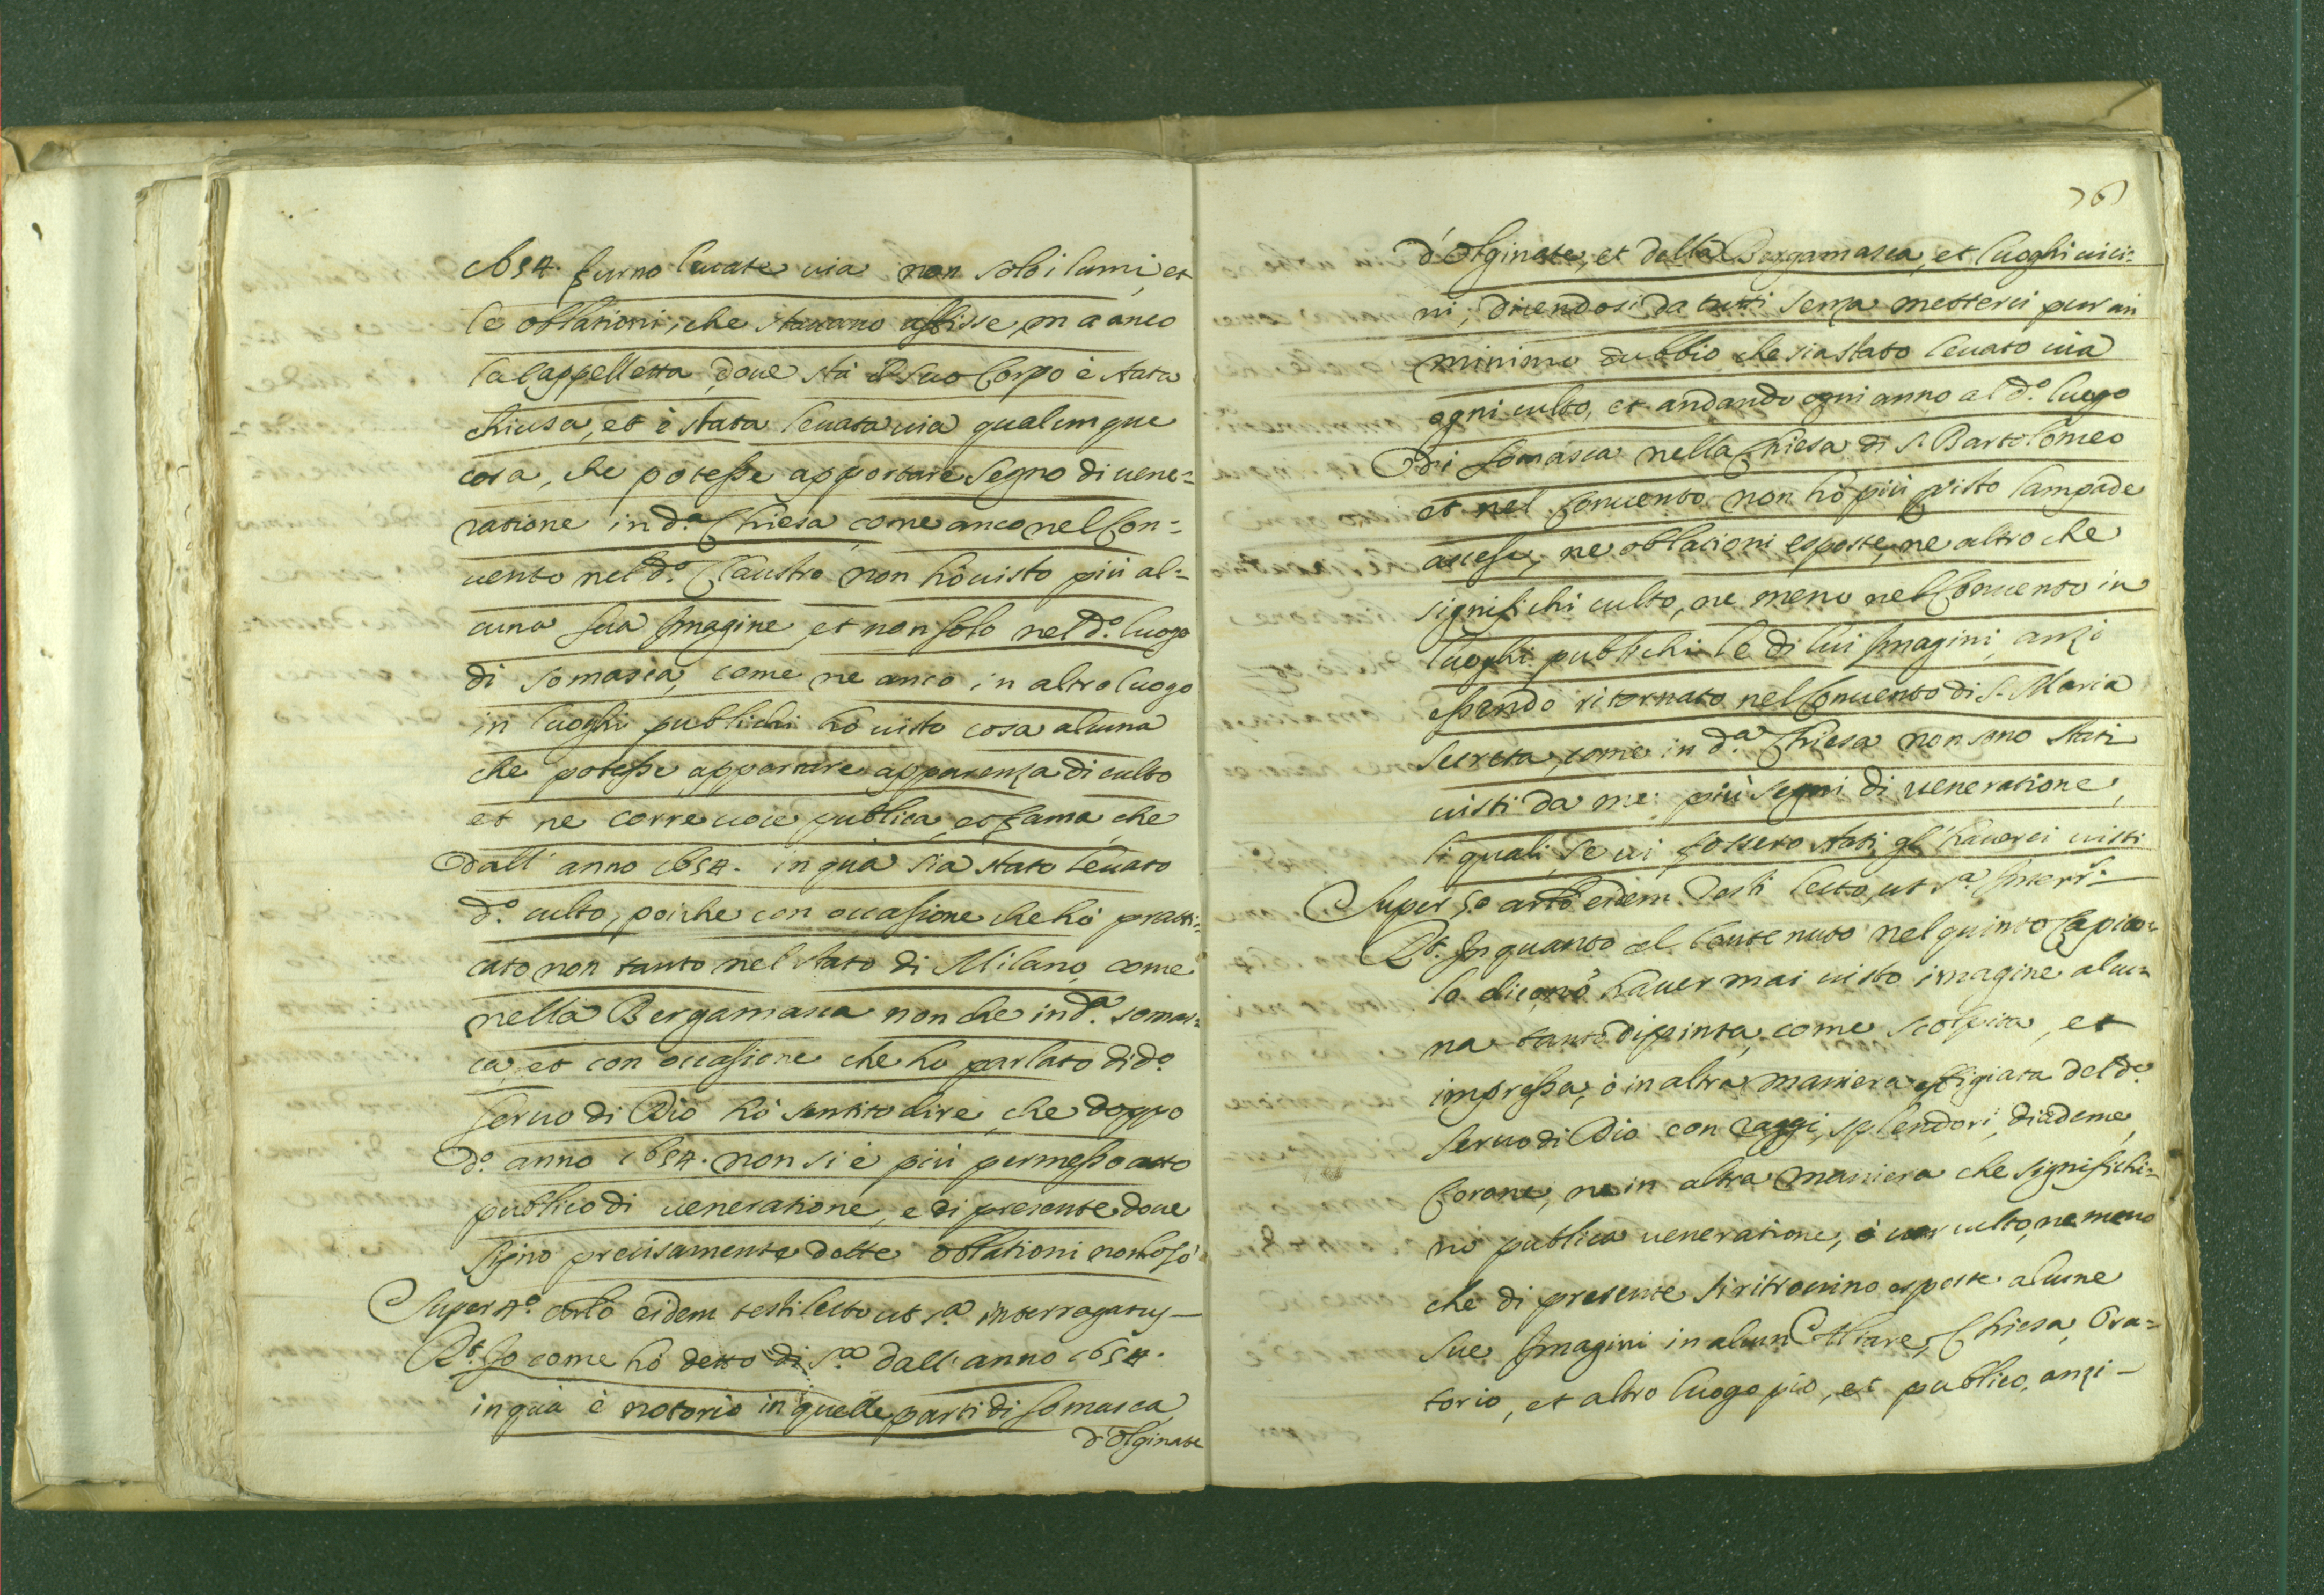 1654. furno levate via non solo i lumi, et
le oblationi, che stavano affisse, ma anco
la Cappelletta, dove stà il suo Corpo è stata
chiusa, et è stata levata via qualunque
cosa, che potesse apportare segno di vene=
ratione in d.ª Chiesa, come anco nel Con=
vento nel d.º Claustro non hò visto più al=
cuna sua Imagine, et non solo nel d.º luogo
di Somasca, come ne anco in altro luogo
in luoghi publichi hò visto cosa alcuna
che potesse apportare apparenza di culto
et ne corre voce publica, et fama, che
dall' anno 1654. in quà sia stato levato
d.º culto, poiche con occasione che hò prati=
cato non tanto nel stato di Milano, come
nella Bergamasca non che in d.ª Somas=
ca, et con occasione che ho parlato di d.º
servo di Dio hò sentito dire, che doppo
d.º anno 1654. non si è più permesso atto
publico di veneratione, e di presente dove
siano precisamente dette oblationi non lo sò
Super 4.º arlo eidem testi lecto ut s.ª interrogatus
R.t Io come hò detto di s.ª dall' anno 1654.
in quà è notorio in quelle parti di Somasca
d'Olginate
76
d'Olginate, et della Bergamasca, et luoghi vici=
ni, dicendosi da tutti senza metterci pur un
minimo dubbio che sia stato levato via
ogni culto, et andando ogni anno al d.º luogo
di Somasca nella Chiesa di S. Bartolomeo
et nel Convento non hò più visto lampade
accese, ne oblationi esposte, ne altro che
significhi culto, ne meno nel Convento in
luoghi publichi le di lui Imagini, anzi
essendo ritornato nel Convento di S. Maria
Secreta, come in d.ª Chiesa non sono stati
visti da me più segni di veneratione,
li quali, se vi fossero stati gl' haverei visti
Super 5.º arlo eidem testi lecto, ut s.ª Interr.s
R.t In quanto al Contenuto nel quinto Capito=
lo dico non haver mai visto imagine alcu=
na tanto dipinta, come scolpita, et
impressa, ò in altra maniera effigiata del d.º
servo di Dio con raggi, splendori, diademe,
Corone, ne in altra maniera che significhi=
no publica veneratione, ò culto, ne meno
che di presente si ritrovino esposte alcune
sue Imagini in alcun Altare, Chiesa, Ora=
torio, et altro luogo pio, et publico, anzi